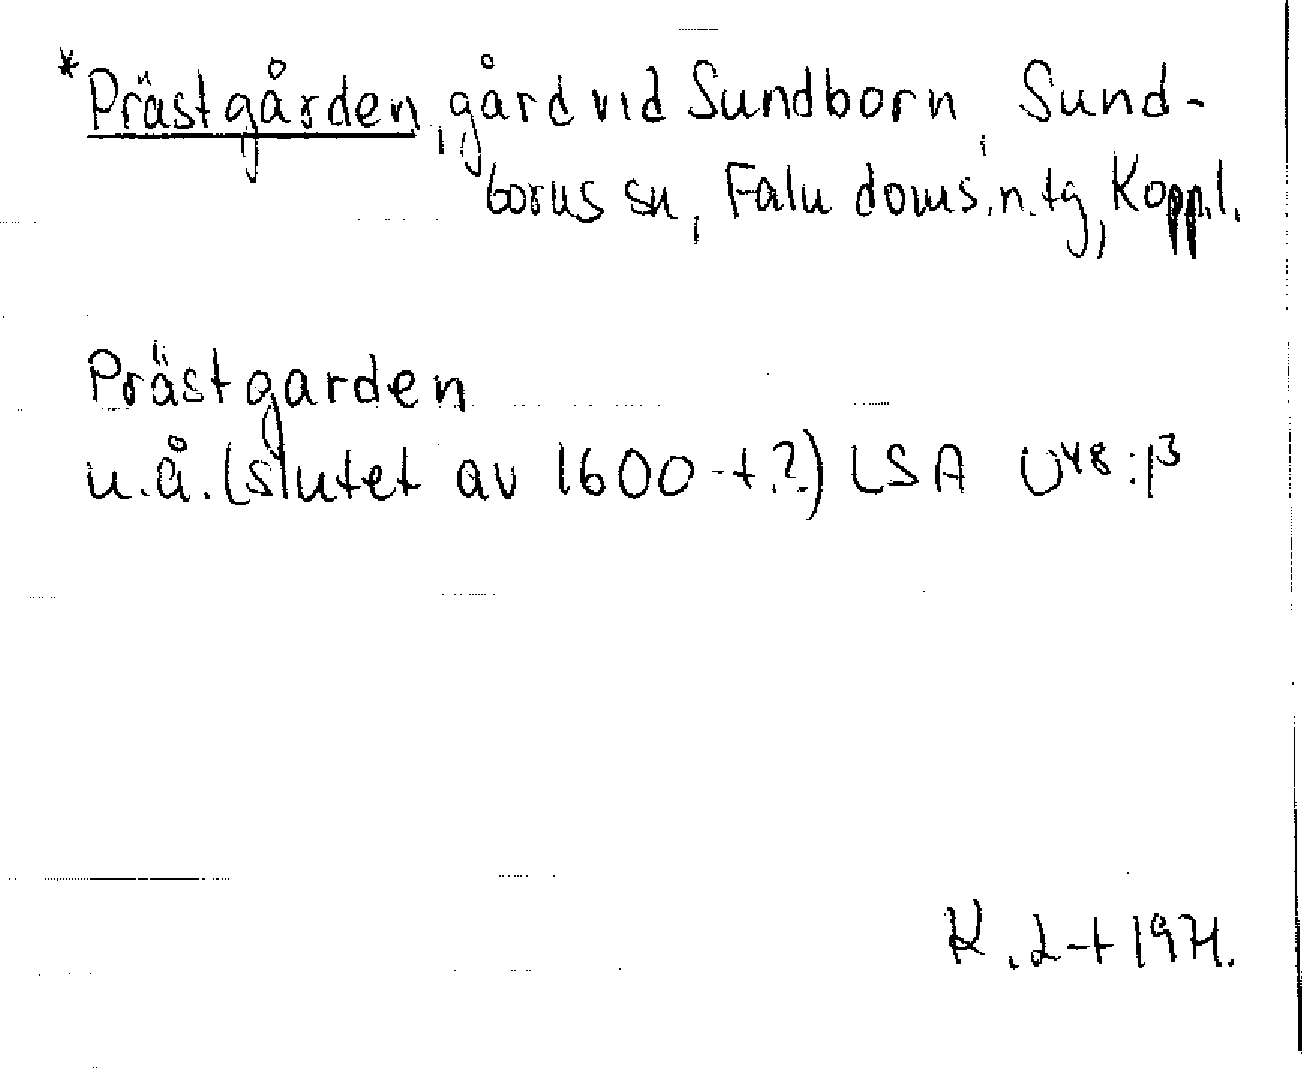 *Prästgården, gård vid Sundborn, Sund-
borns sn, Falu doms.n.tg, Kopp.l.
Prästgarden
u.å. (slutet av 1600-t.?) LSA U48:13
K. L-t 1971.